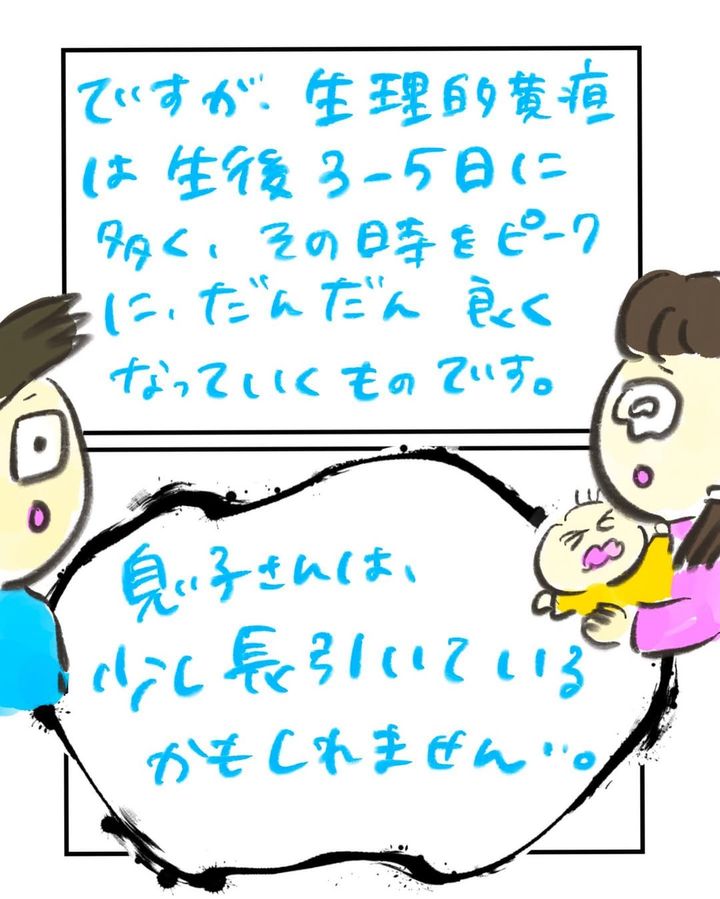 ですが、生理的黄疸
は生後3-5日に
多く、その時をピーク
に、だんだん良く
なっていくものです。
息子さんは、
少し長引いている
かもしれません…。